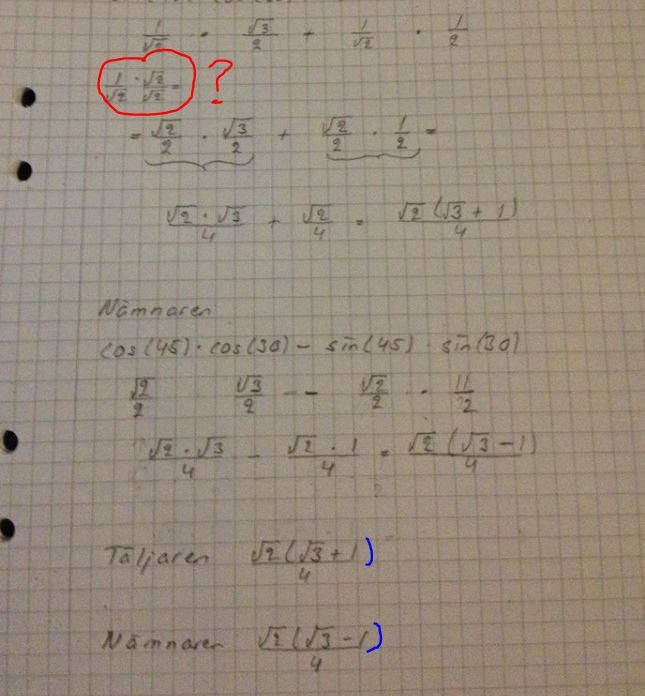 1/√2 · √3/2 + 1/√2 · 1/2
1/√2 · √2/√2 = ?
= √2/2 · √3/2 + √2/2 · 1/2 =
√2 · √3/4 + √2/4 = √2 (√3 + 1)/4
Nämnaren
cos(45) · cos(30) - sin(45) · sin(30)
√2/2 √3/2 - - √2/2 · 1/2
√2 · √3/4 - √2 · 1/4 = √2 (√3 - 1)/4
Täljaren √2 (√3 + 1)/4
Nämnaren √2 (√3 - 1)/4